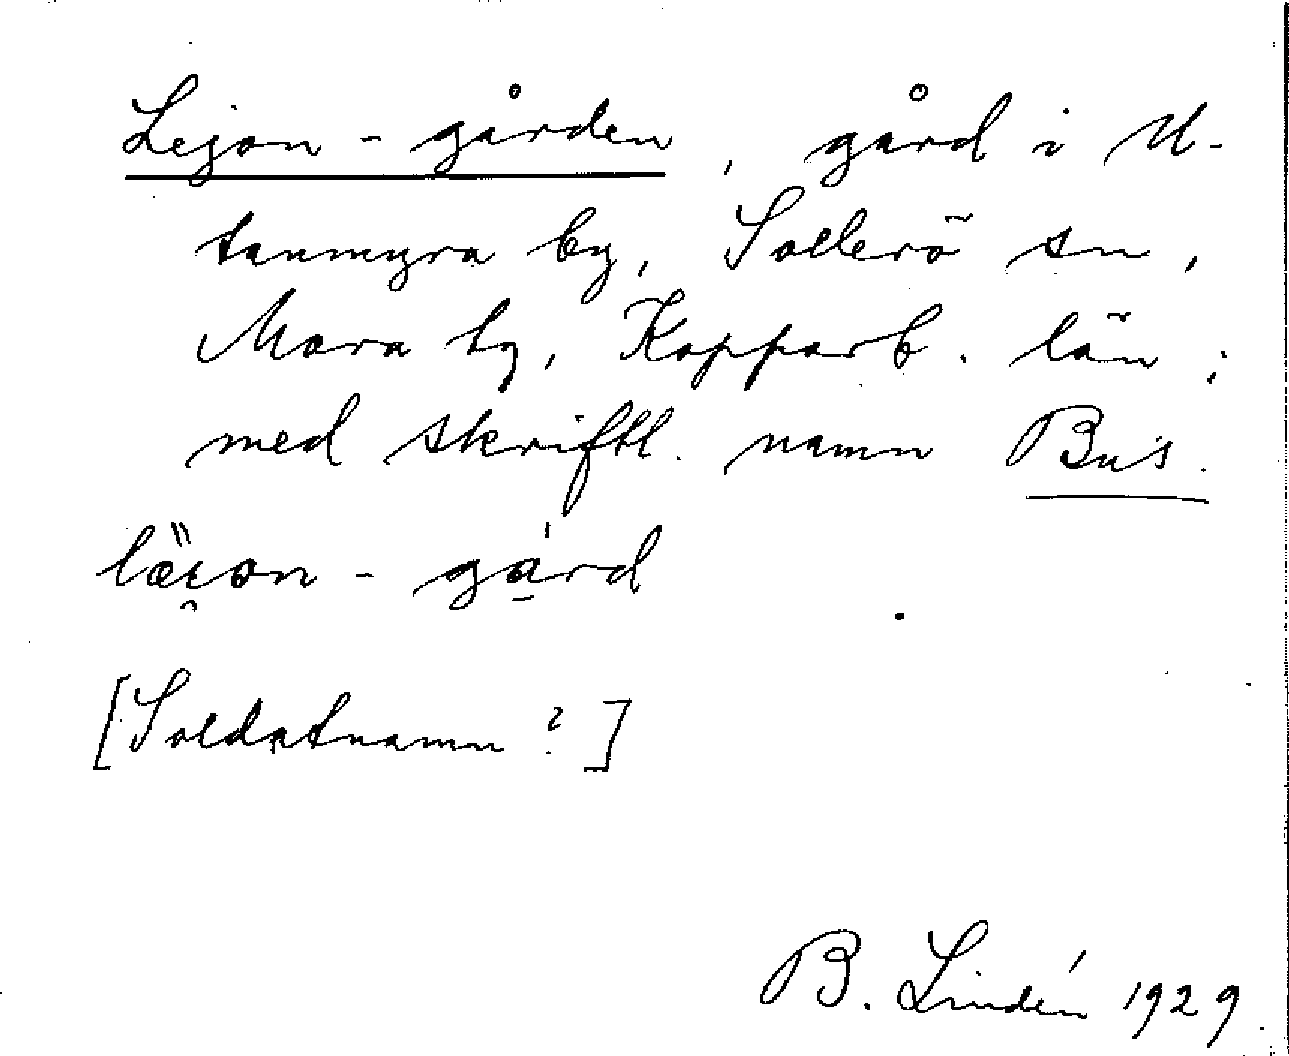 Lejon-gården, gård i U-
tanmyra by, Sollerö sn,
Mora tg, Kopparb. län;
med skriftl. namn Bus.
lä̈i̯on-gá̠rd
[Soldatnamn?]
B. Lindén 1929